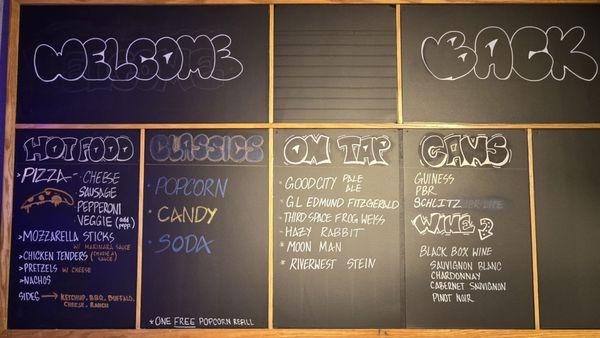 WELCOME
BACK
HOT FOOD
PIZZA - CHEESE
· SAUSAGE
· PEPPERONI
· VEGGIE (add pepp)
> MOZZARELLA STICKS
W/ MARINARA SAUCE
> CHICKEN TENDERS
> PRETZELS W/ CHEESE
> NACHOS
SIDES → KETCHUP, BBQ, BUFFALO,
CHEESE, RANCH
CLASSICS
· POPCORN
· CANDY
· SODA
* ONE FREE POPCORN REFILL
ON TAP
· GOOD CITY PALE
ALE
· G.L EDMUND FITZGERALD
· THIRD SPACE FROG WEISS
· HAZY RABBIT
* MOON MAN
* RIVERWEST STEIN
CANS
GUINESS
PBR
SCHLITZ
WINE
BLACK BOX WINE
SAUVIGNON BLANC
CHARDONNAY
CABERNET SAUVIGNON
PINOT NOIR